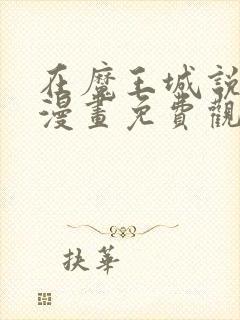 在魔王城説
漫畫免費觀
扶華